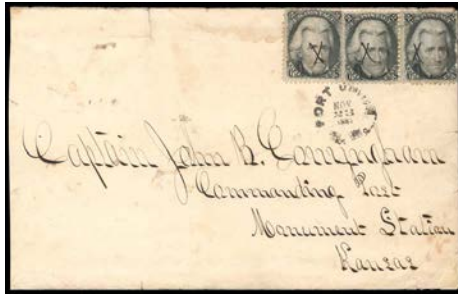 FORT UNION
NOV
Captain John R. Cunningham
Commanding Post
Monument Station
Kansas